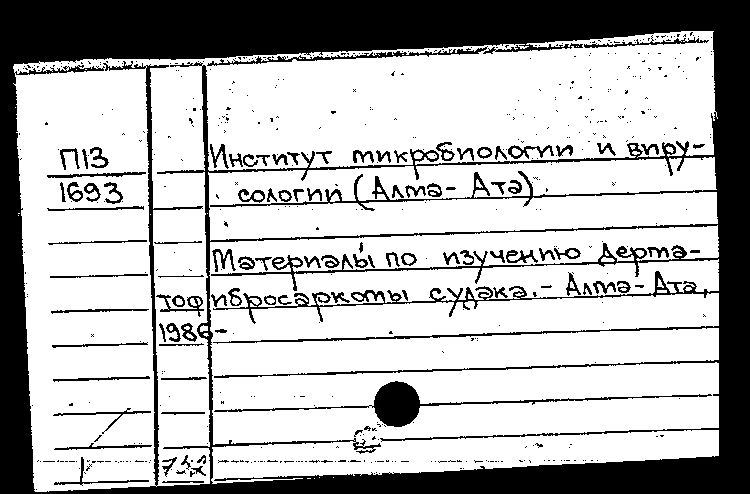 П13
1693
Институт микробиологии и виру-
сологии (Алма-Ата).
Материалы по изучению дерма-
тофибросаркомы судака.- Алма-Ата,
1986-